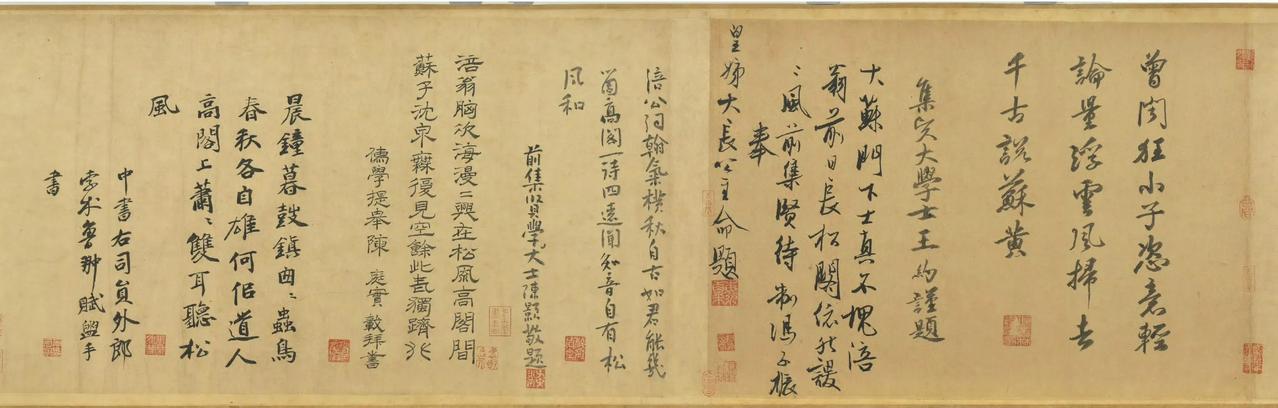 曾聞狂小子恣意輕
論量浮雲風掃去
千古說蘇黃
集賢大學士王約謹題
大蘇門下士真不愧涪
翁前日長松閣依然謖
謖風前集賢待制馮子振
奉
皇姊大長公主命題
涪公詞翰氣橫秋自古如君能幾
酋高閣一詩四遠聞知音自有松
風和
前集賢大學士陳顥敬題
涪翁胸次海漫漫興在松風高閣間
蘇子沈泉寐復見空餘此書獨躋
儒學提舉陳庭實敬拜書
晨鐘暮鼓鎮由由蟲鳥
春秋各自雄何侶道人
高閣上蕭蕭雙耳聽松
風
中書右司員外郎
孛朮魯翀賦盥手
書